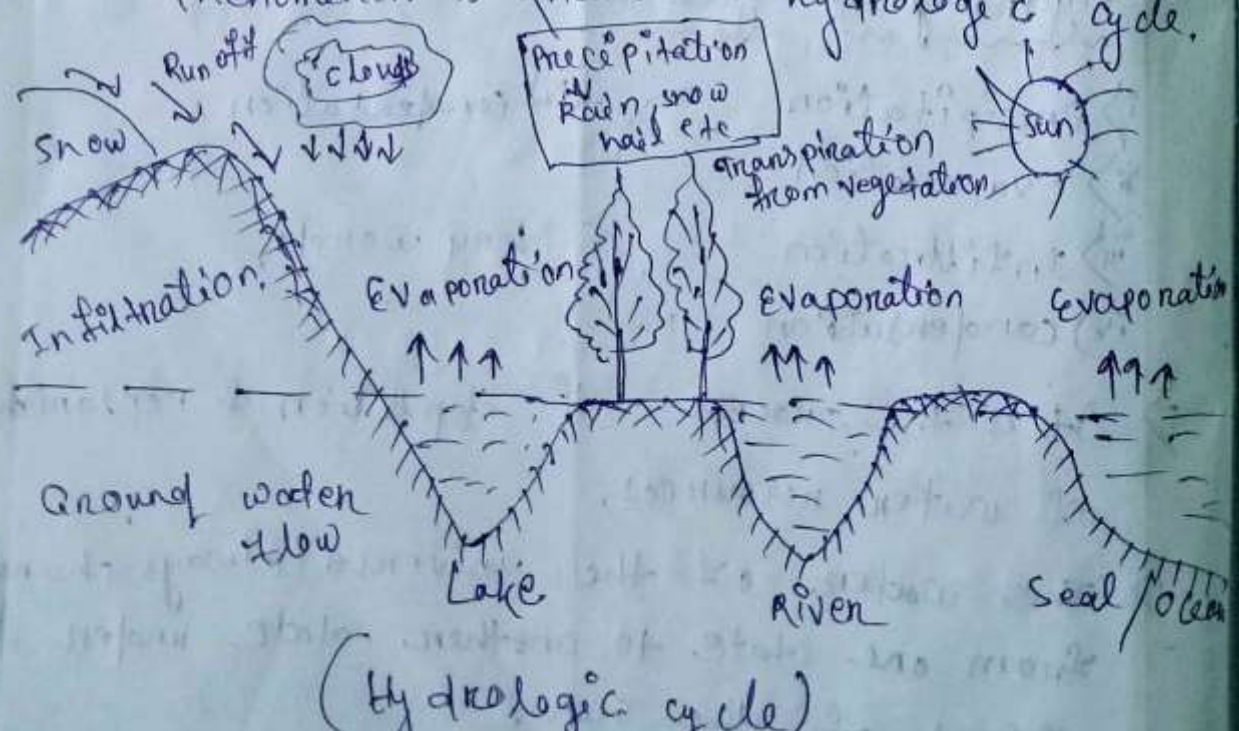 hydrologic cycle.
Run off
clouds
Precipitation
Rain, snow
hail etc
Sun
Snow
Transpiration
from vegetation
Infiltration.
Evaporation
Evaporation
Evaporation
Ground water
flow
Lake
River
Seal / Ocean
(Hydrologic cycle)